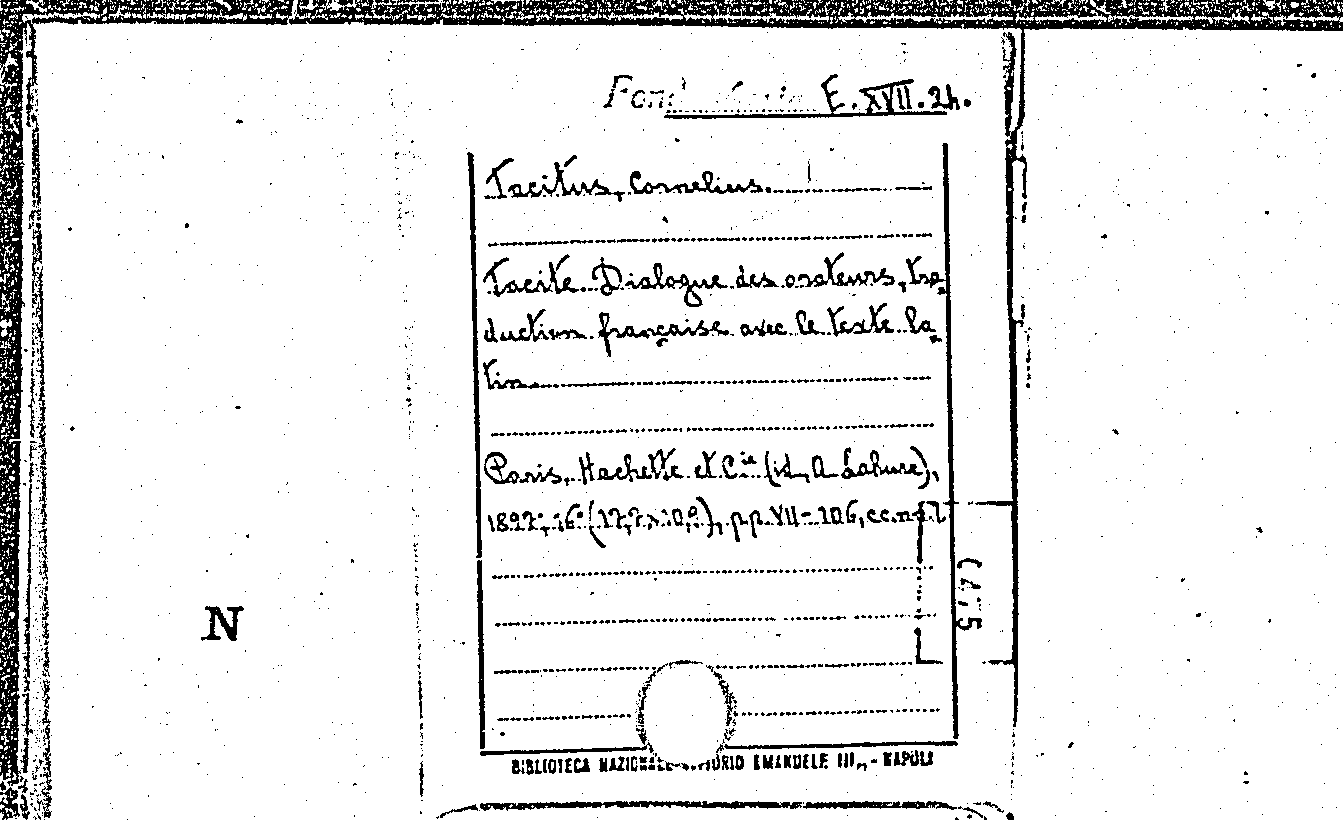 E. XVII. 24.
Tacitus, Cornelius.
Tacite. Dialogue des orateurs, tra-
duction française avec le texte la-
tin.
Paris, Hachette et C.ie (id, A Lahure),
pp. VII-106,
N
BIBLIOTECA NAZIONALE VITTORIO EMANUELE III - NAPOLI